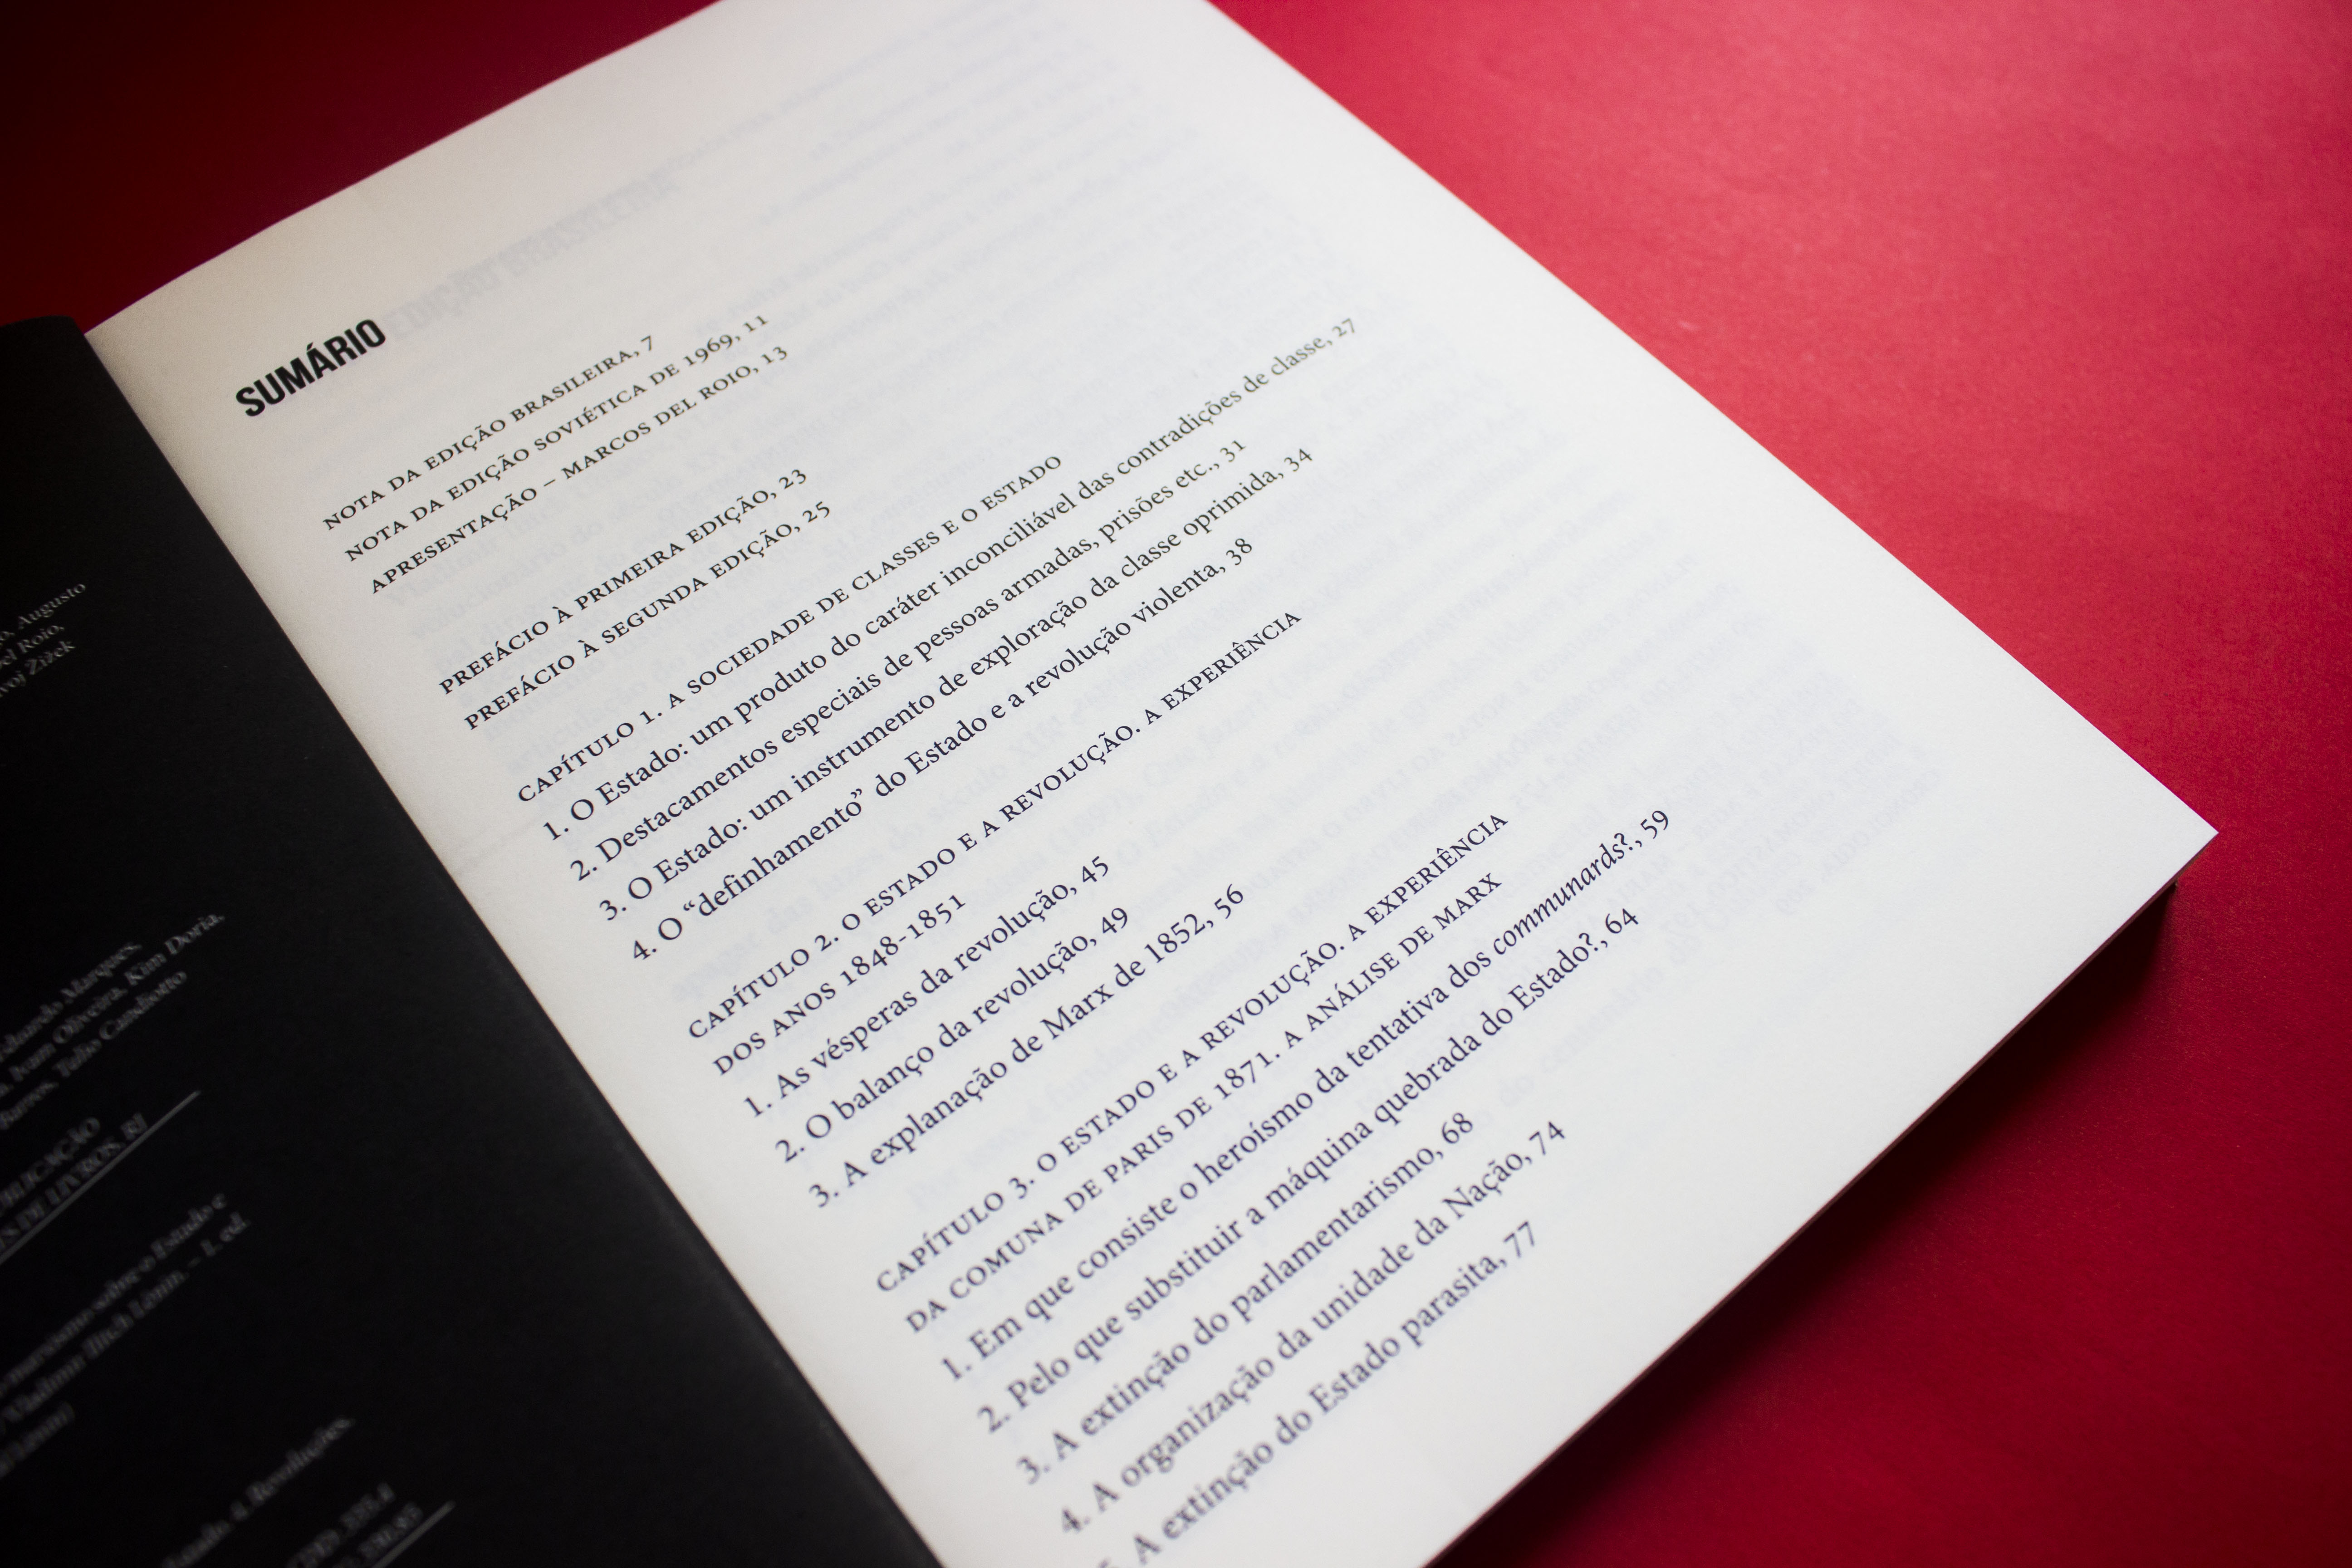 o, Augusto
el Roio,
voj Žižek
duardo Marques,
Nuan Oliveira, Kim Doria,
Tulio Candiotto
BLICAÇÃO
S DE LIVROS, RJ
marxismo sobre o Estado e
Vladímir Ilitch Lênin. – 1. ed.
4. Revoluções.
SUMÁRIO
NOTA DA EDIÇÃO BRASILEIRA, 7
NOTA DA EDIÇÃO SOVIÉTICA DE 1969, 11
APRESENTAÇÃO – MARCOS DEL ROIO, 13
PREFÁCIO À PRIMEIRA EDIÇÃO, 23
PREFÁCIO À SEGUNDA EDIÇÃO, 25
CAPÍTULO 1. A SOCIEDADE DE CLASSES E O ESTADO
1. O Estado: um produto do caráter inconciliável das contradições de classe, 27
2. Destacamentos especiais de pessoas armadas, prisões etc., 31
3. O Estado: um instrumento de exploração da classe oprimida, 34
4. O “definhamento” do Estado e a revolução violenta, 38
CAPÍTULO 2. O ESTADO E A REVOLUÇÃO. A EXPERIÊNCIA
DOS ANOS 1848-1851
1. As vésperas da revolução, 45
2. O balanço da revolução, 49
3. A explanação de Marx de 1852, 56
CAPÍTULO 3. O ESTADO E A REVOLUÇÃO. A EXPERIÊNCIA
DA COMUNA DE PARIS DE 1871. A ANÁLISE DE MARX
1. Em que consiste o heroísmo da tentativa dos communards?, 59
2. Pelo que substituir a máquina quebrada do Estado?, 64
3. A extinção do parlamentarismo, 68
4. A organização da unidade da Nação, 74
5. A extinção do Estado parasita, 77